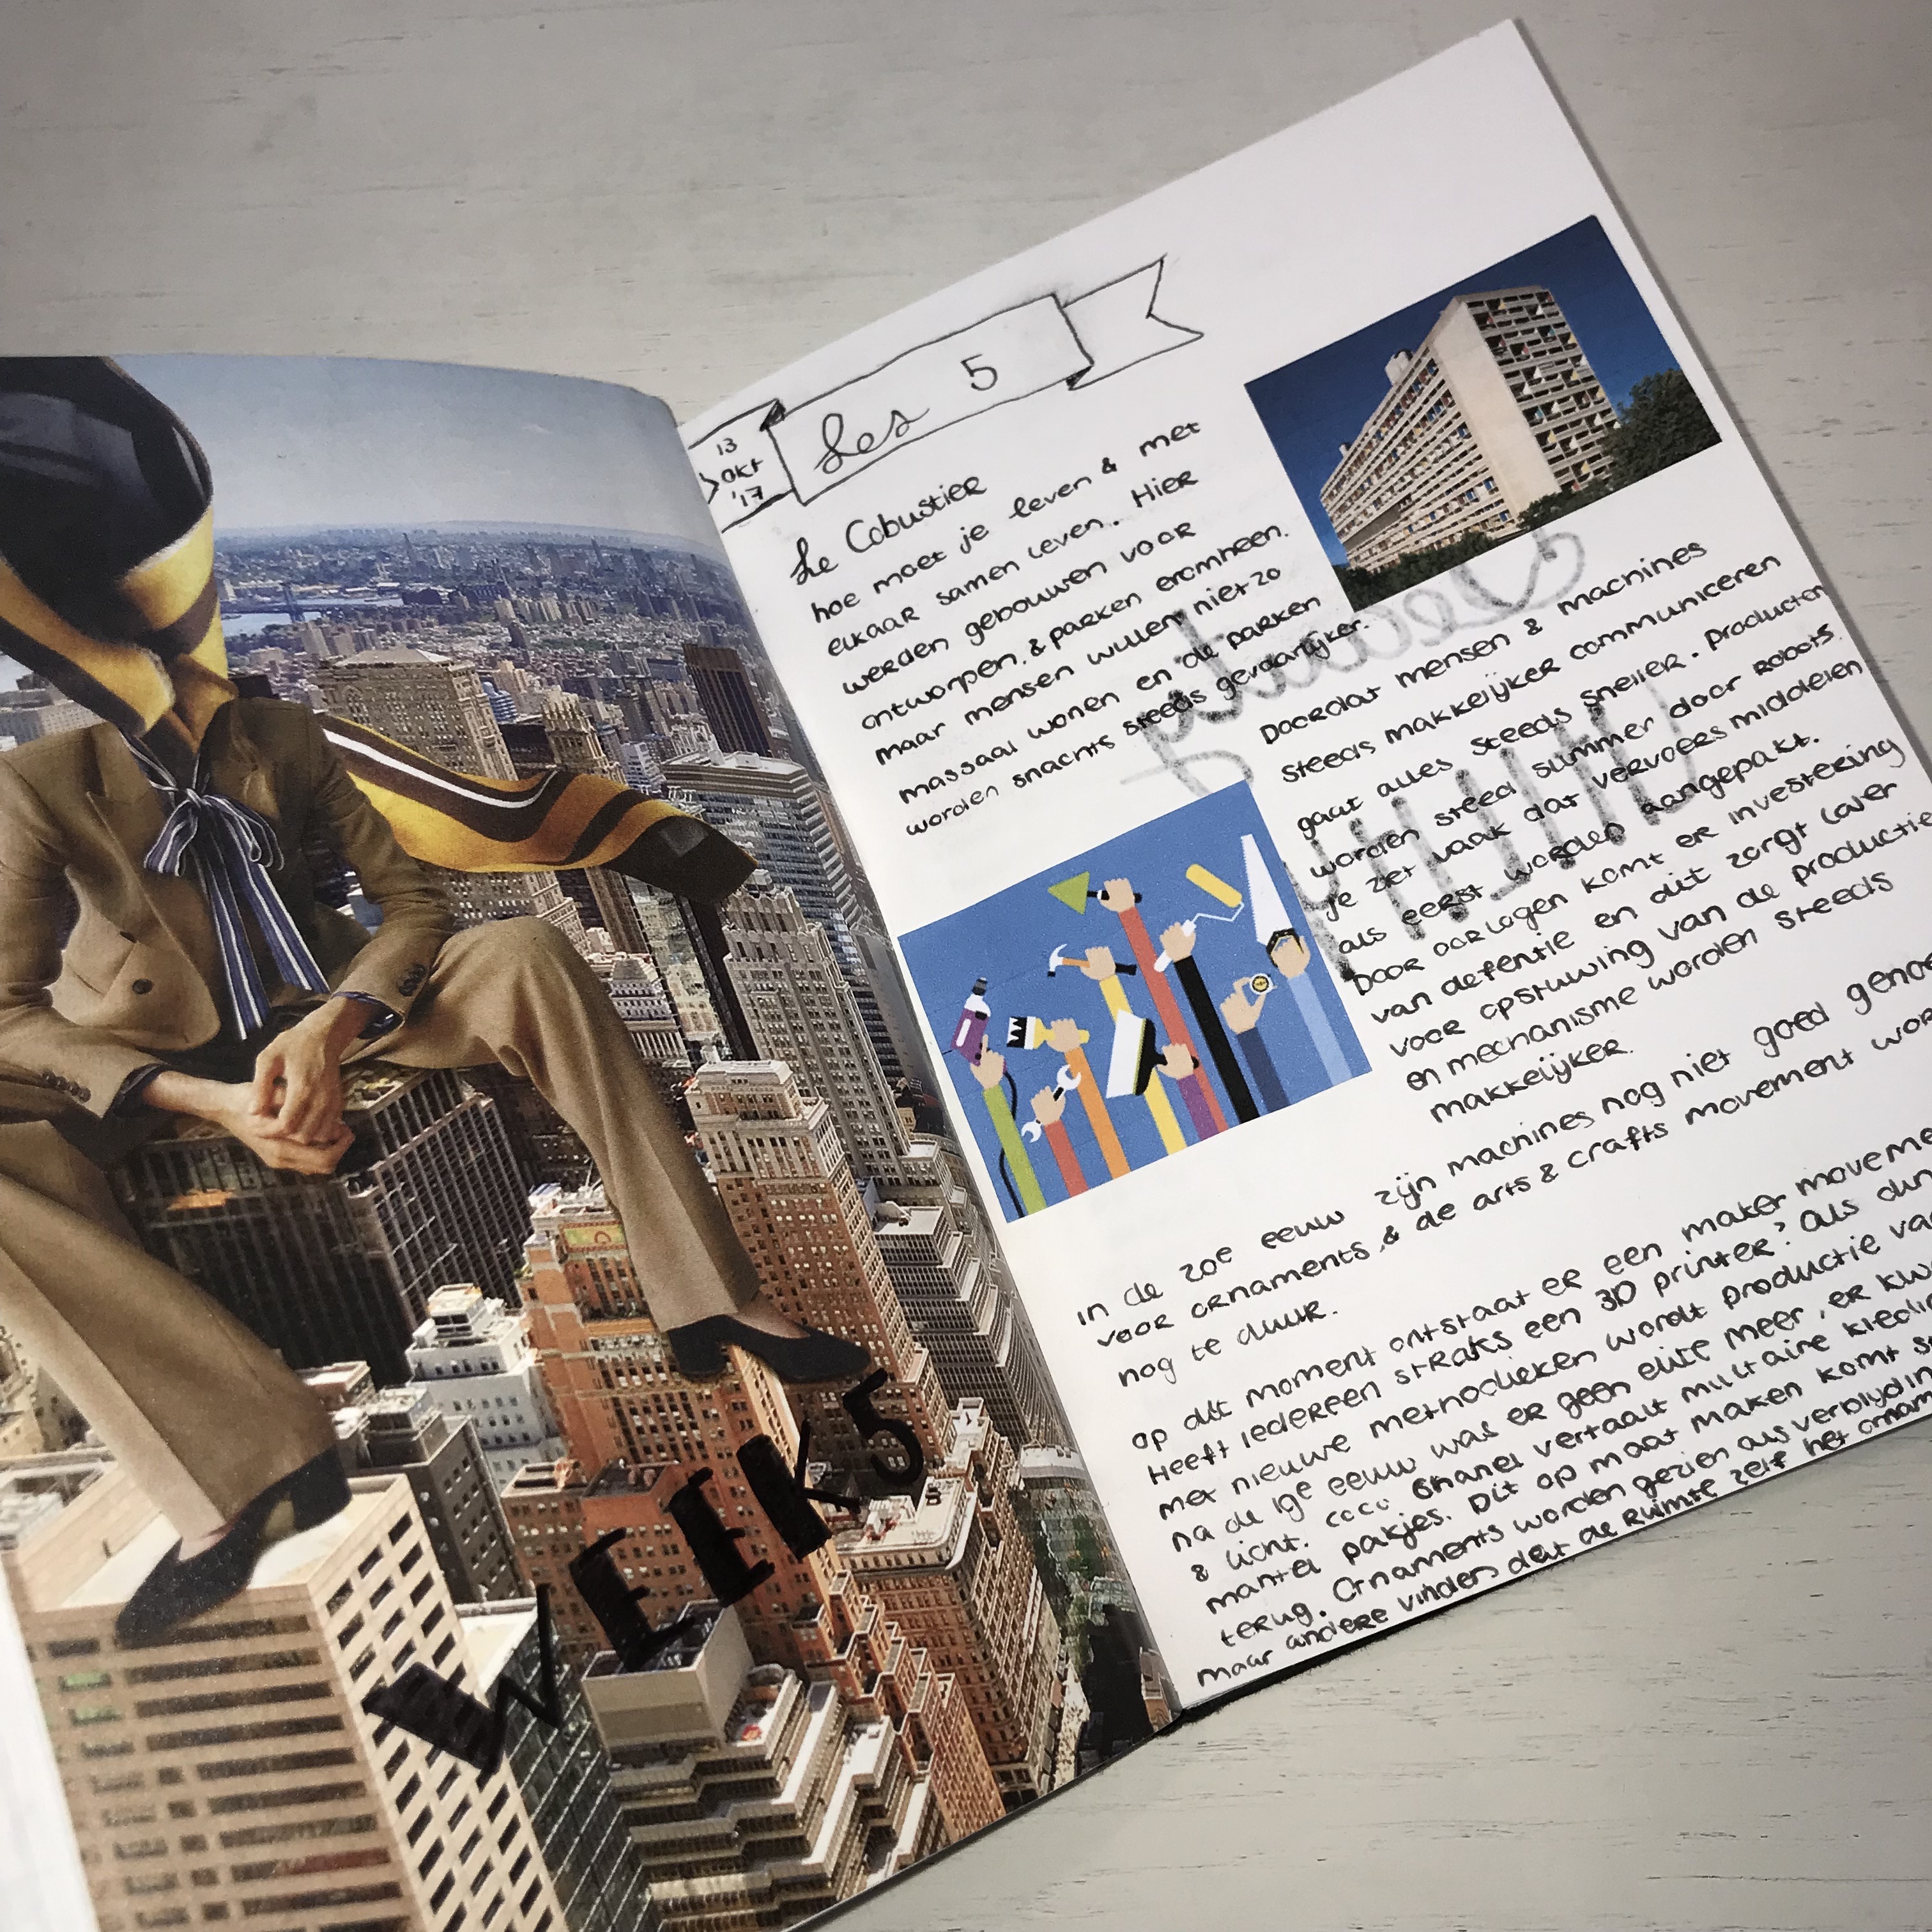 WEEK 5
13
okt
'17
Les 5
Le Cobustier
hoe moet je leven & met
elkaar samen leven. Hier
werden gebouwen voor
ontworpen. & parken eromheen.
maar mensen willen niet zo
massaal wonen en de parken
worden snachts steeds gevaarlijker.
Doordat mensen & machines
steeds makkelijker communiceren
gaat alles steeds sneller. producten
worden steed slimmer door robots.
je ziet vaak dat vervoers middelen
als eerst worden aangepakt.
Door oorlogen komt er investering
van defentie en dit zorgt weer
voor opstuwing van de productie
en mechanisme worden steeds
makkelijker.
in de 20e eeuw zijn machines nog niet goed
voor ornaments, & de arts & crafts movement
nog te duur.
op dit moment ontstaat er een maker
Heeft iedereen straks een 3D printer? als
met nieuwe methodieken wordt productie
na de 19e eeuw was er geen elite meer, er
& licht. coco Chanel vertaalt militaire
mantel pakjes. Dit op maat maken komt
terug. Ornaments worden gezien als
maar andere vinden dat de ruimte zelf het